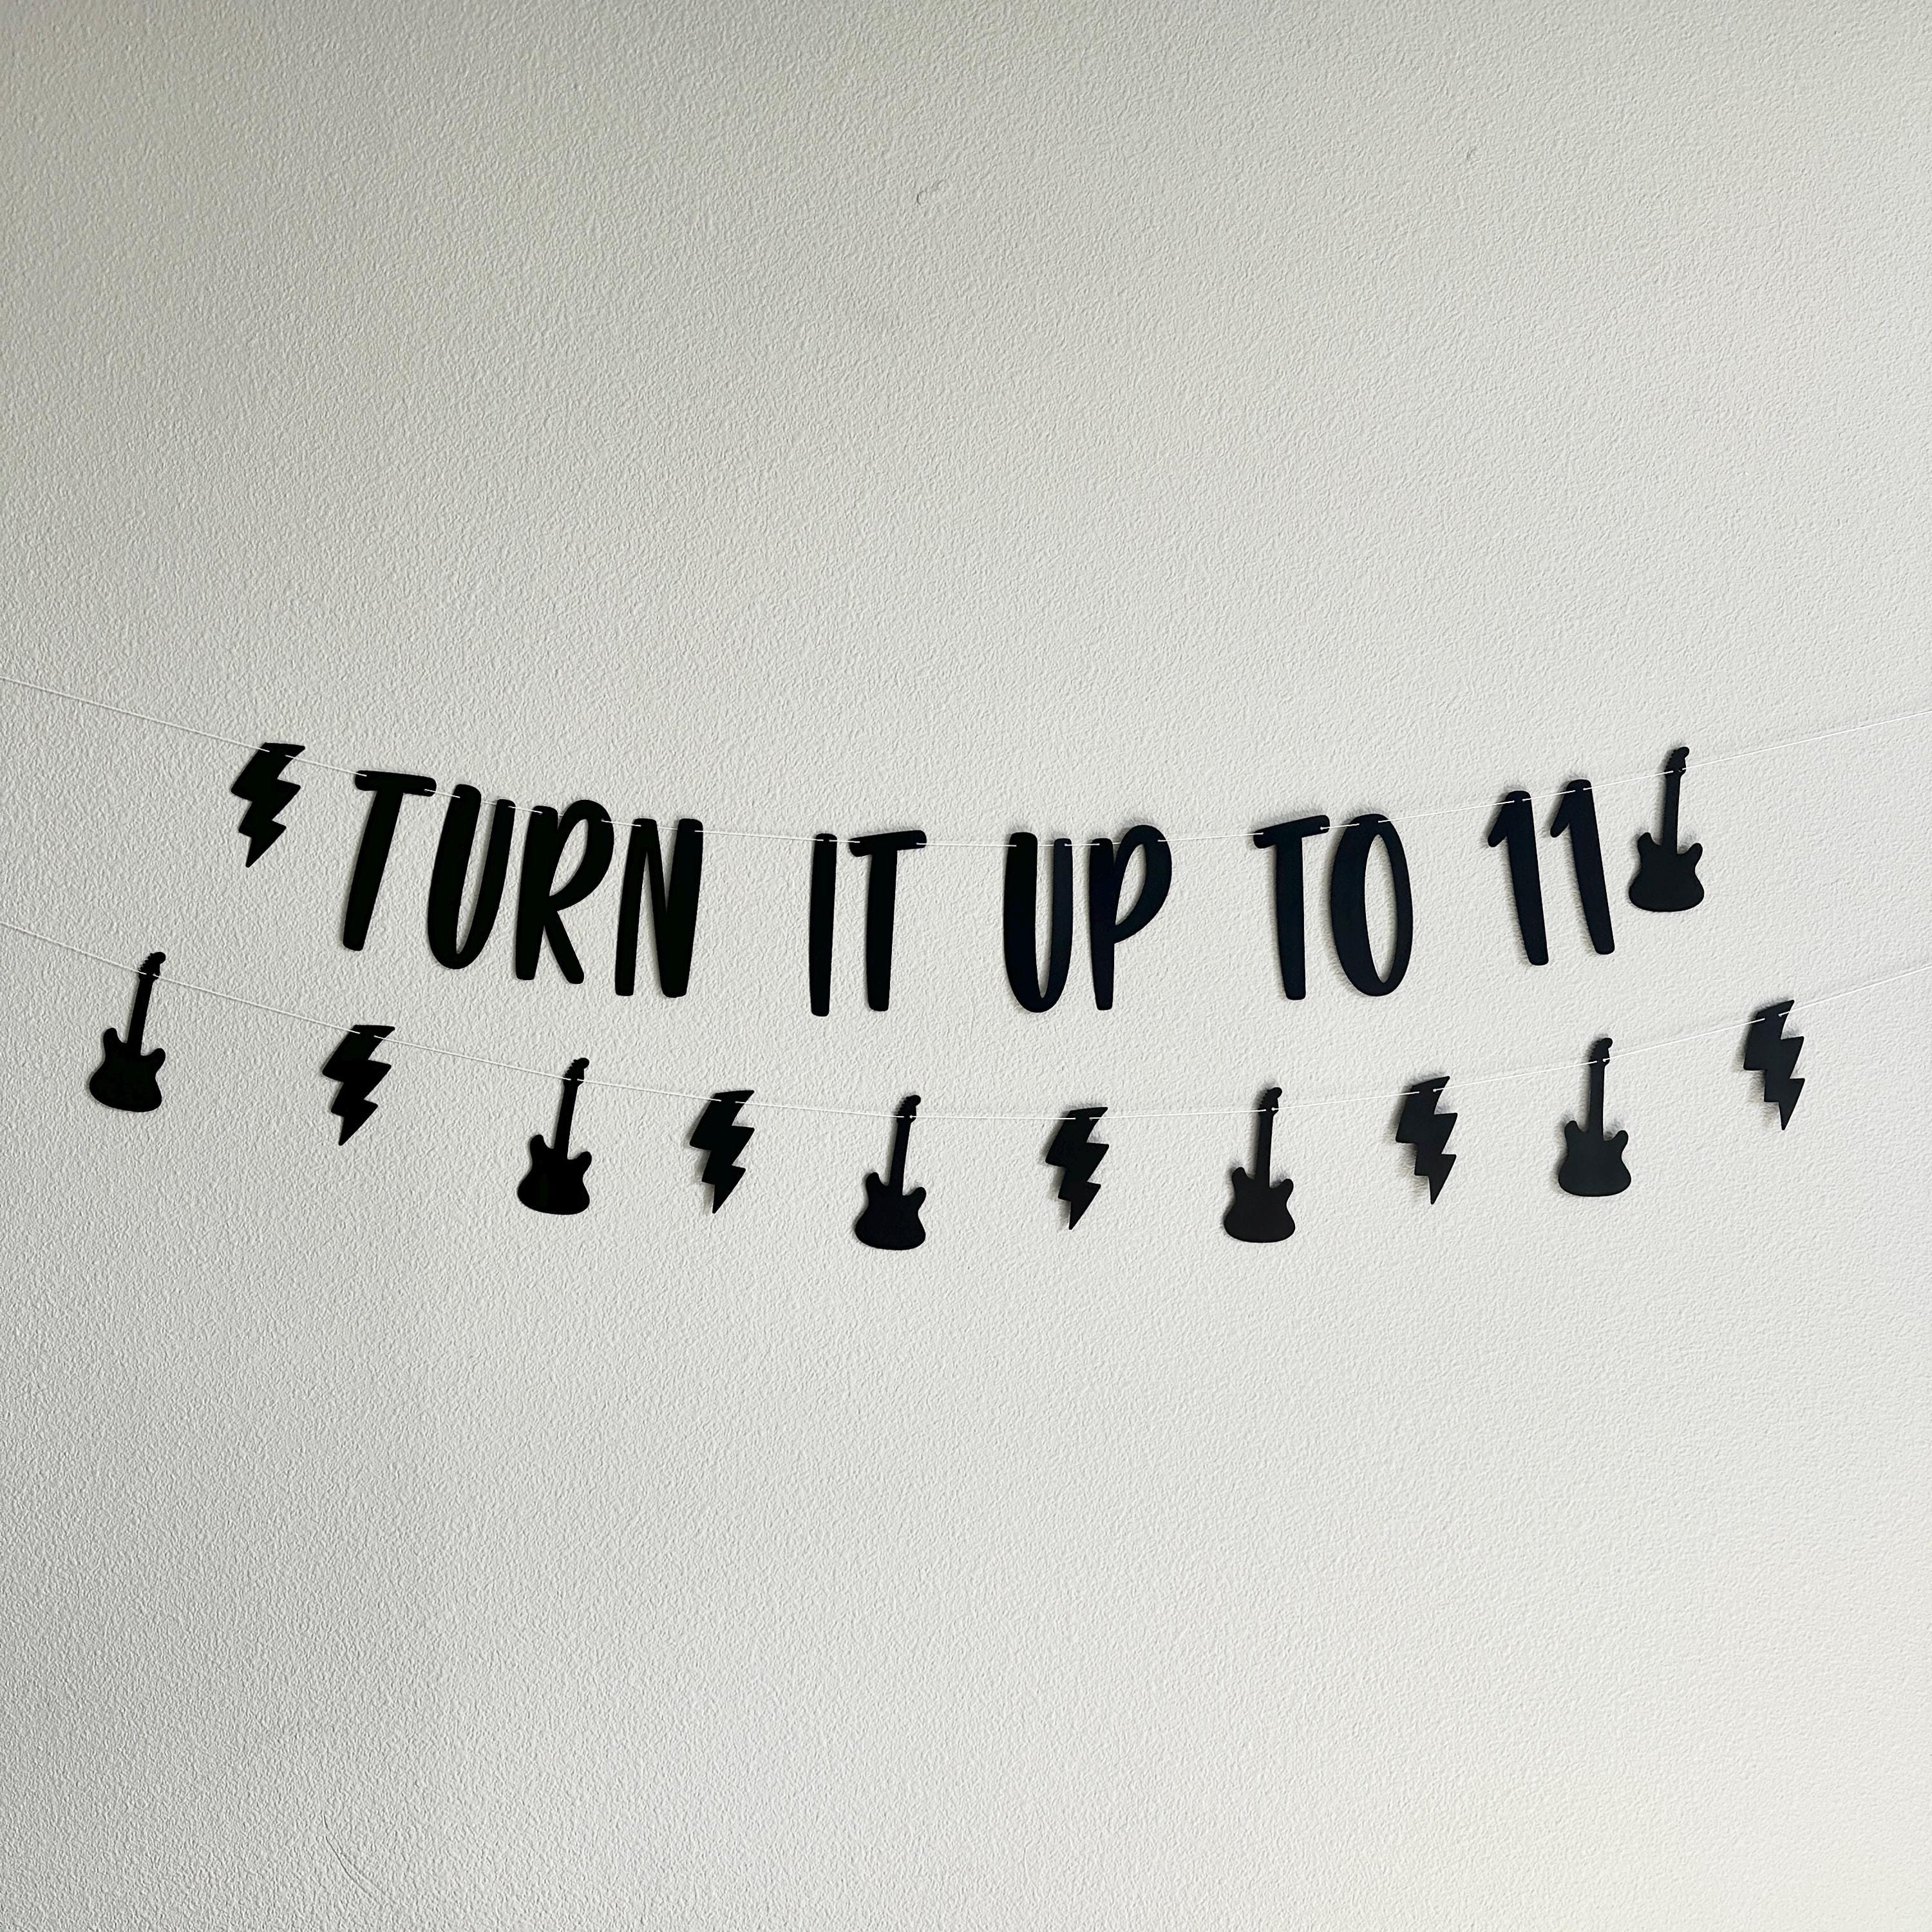 TURN IT UP TO 11